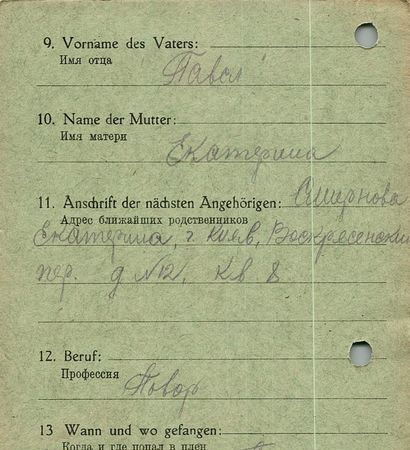 9. Vorname des Vaters:
Имя отца
Павел
10. Name der Mutter:
Имя матери
Екатерина
11. Anschrift der nächsten Angehörigen: Смирнова
Адрес ближайших родственников
Екатерина, г. Киев, Воскресенский
пер. д №12, кв 8
12. Beruf:
Профессия
Повар
13 Wann und wo gefangen:
Когда и где попал в плен